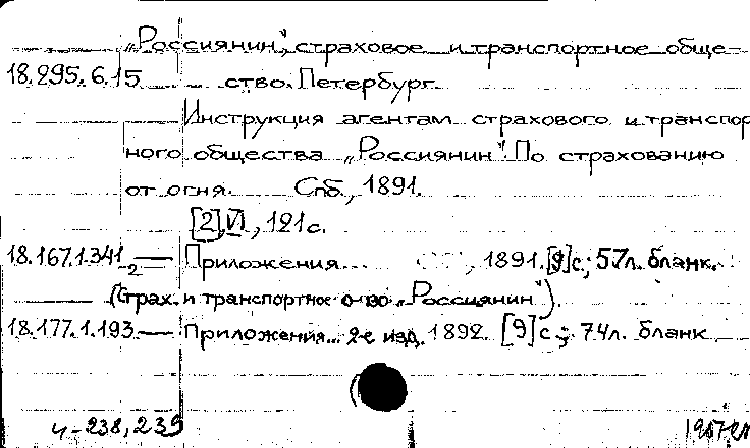 „Россиянин", страховое и транспортное обще-
18.295.6.15 ство. Петербург.
Инструкция агентам страхового и транспорт
ного общества „Россиянин". По страхованию
от огня. Спб., 1891.
[2], VI, 121 с.
18.167.1.341 — Приложения... 1891. [9] с.; 57 л. бланк.
2
(Страх. и транспортное о-во „Россиянин").
18.177.1.193 — Приложения... 2-е изд. 1892. [9] с.; 74 л. бланк
ч-238, 239